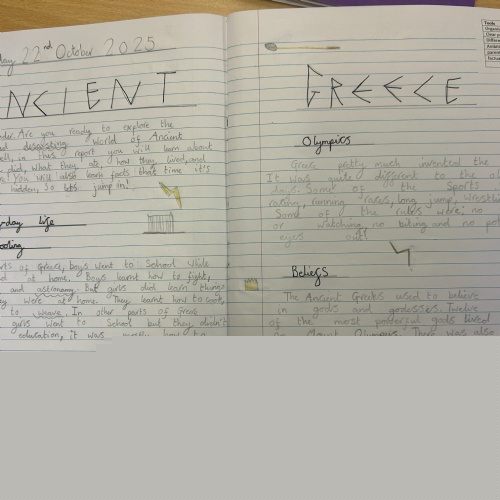 day 22nd October 2025
ANCIENT
Are you ready to explore the
disgusting world of Ancient
in this report you will learn about
what they ate, how they lived, and
You will also learn facts that time it's
hidden, so lets jump in!
day life
of Greece, boys went to School while
at home. Boys learnt how to fight,
and astronomy. But girls did learn things
were at home. They learnt how to cook,
to weave. In other parts of Greece
girls went to School but they didn't
education, it was mostly how to
GREECE
Olympics
Greece pretty much invented the
It was quite different to the
days. Some of the Sports
racing, running races, long jump, wrestli
Some of the rules were: no
or watching, no biting and no po
eyes out!
Beliefs
The Ancient Greeks used to believe
in gods and godesses. Twelve
of the most powerful gods lived
Mount Olympus. There was also
Tools